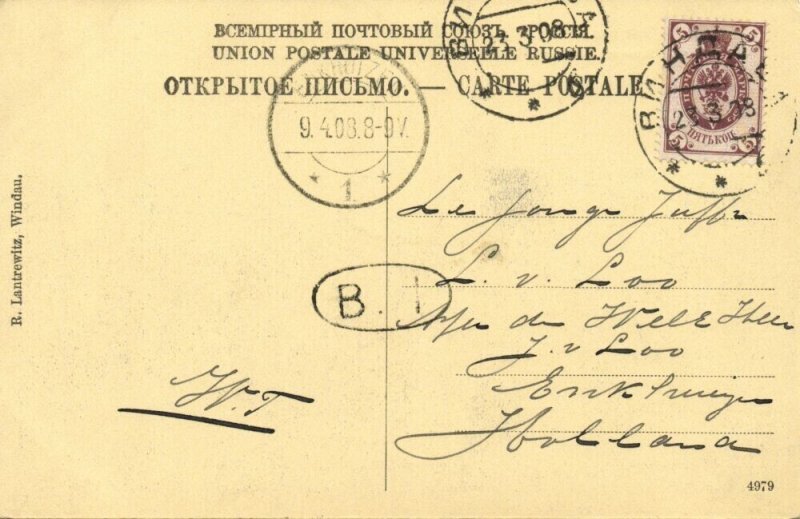 ВСЕМІРНЫЙ ПОЧТОВЫЙ СОЮЗЪ. РОССІЯ.
UNION POSTALE UNIVERSELLE RUSSIE.
ОТКРЫТОЕ ПИСЬМО. — CARTE POSTALE
23 3 08
ВИНДАВА
23 3 08
5 5
ПЯТЬ КОП.
5 5
9.4.08.8-9V.
1
R. Lantrewitz, Windau.
De Jonge Juffr
L. v. Loo
B. 1
den Heer
J. v Loo
W.T
Enkhuizen
Holland
4979